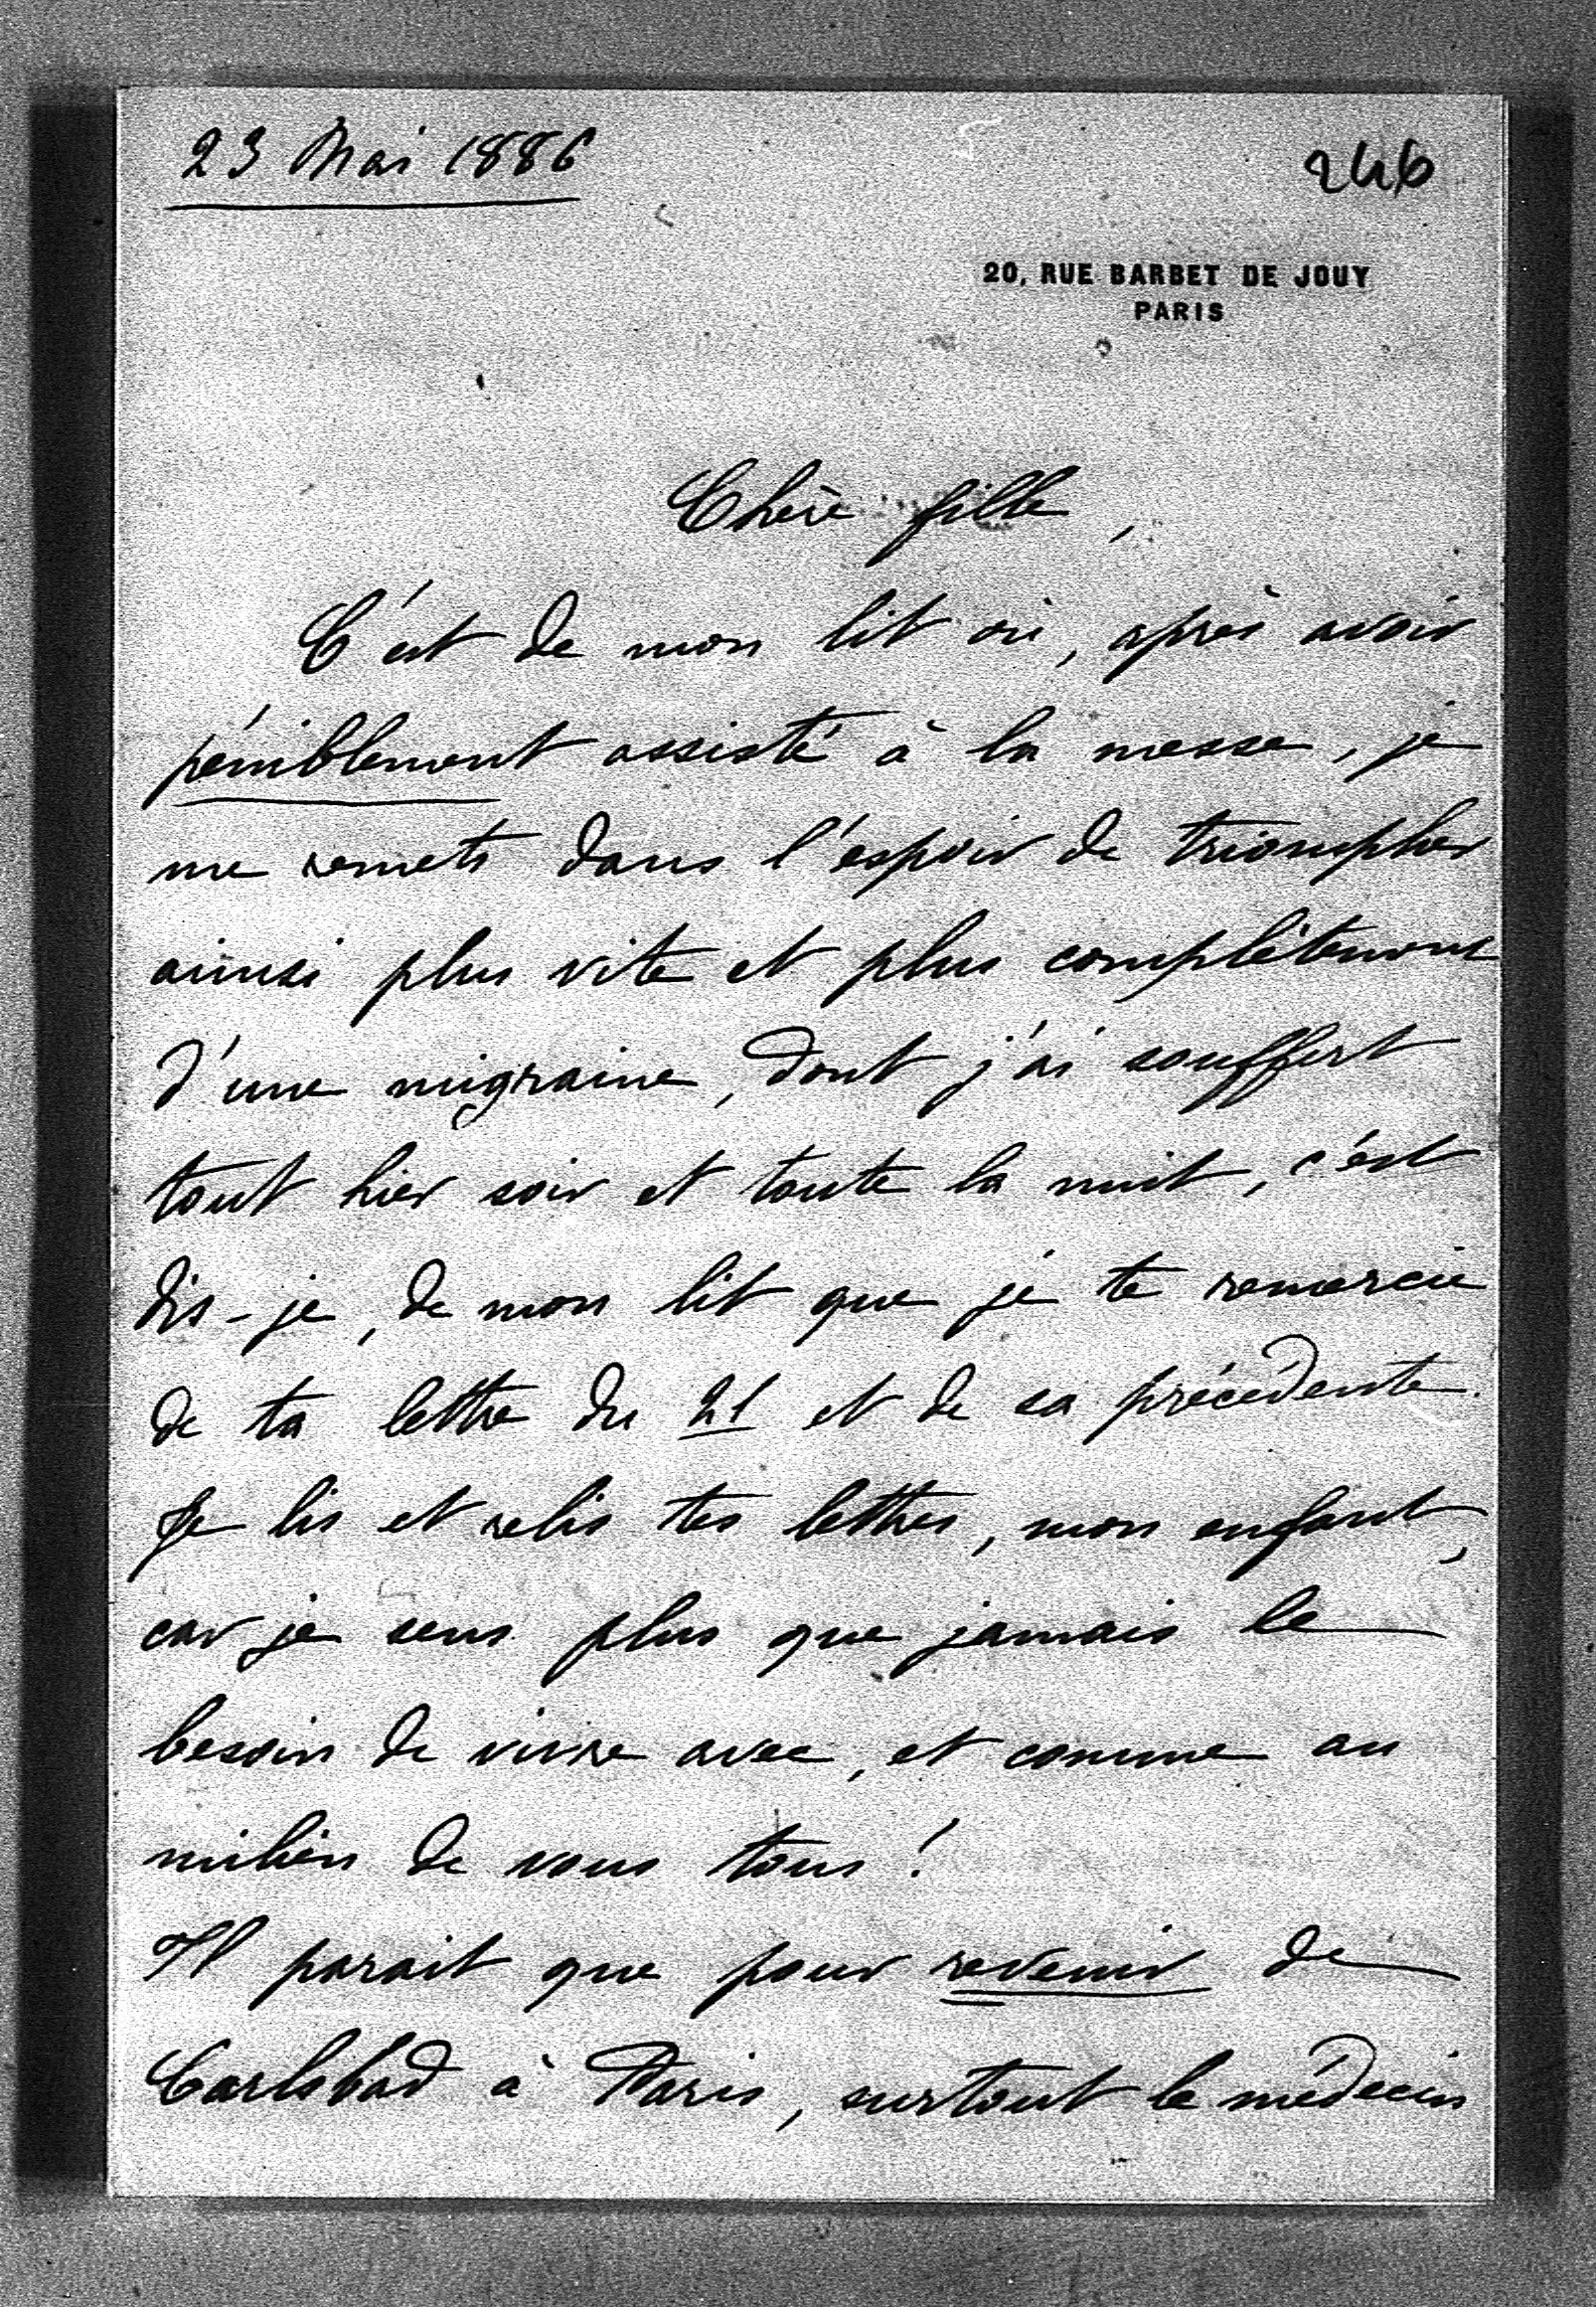 23 Mai 1886
246
20, RUE BARBET DE JOUY
PARIS
Chère fille,
C'est de mon lit où, après avoir
péniblement assisté à la messe, je
me remets dans l'espoir de triompher
ainsi plus vite et plus complètement
d'une migraine, dont j'ai souffert
tout hier soir et toute la nuit, c'est
dis-je, de mon lit que je te remercie
de ta lettre du 21 et de sa précédente.
Je lis et relis tes lettres, mon enfant,
car je sens plus que jamais le
besoin de vivre avec, et comme au
milieu de vous tous !
Il parait que pour revenir de
Carlsbad à Paris, surtout le médecin